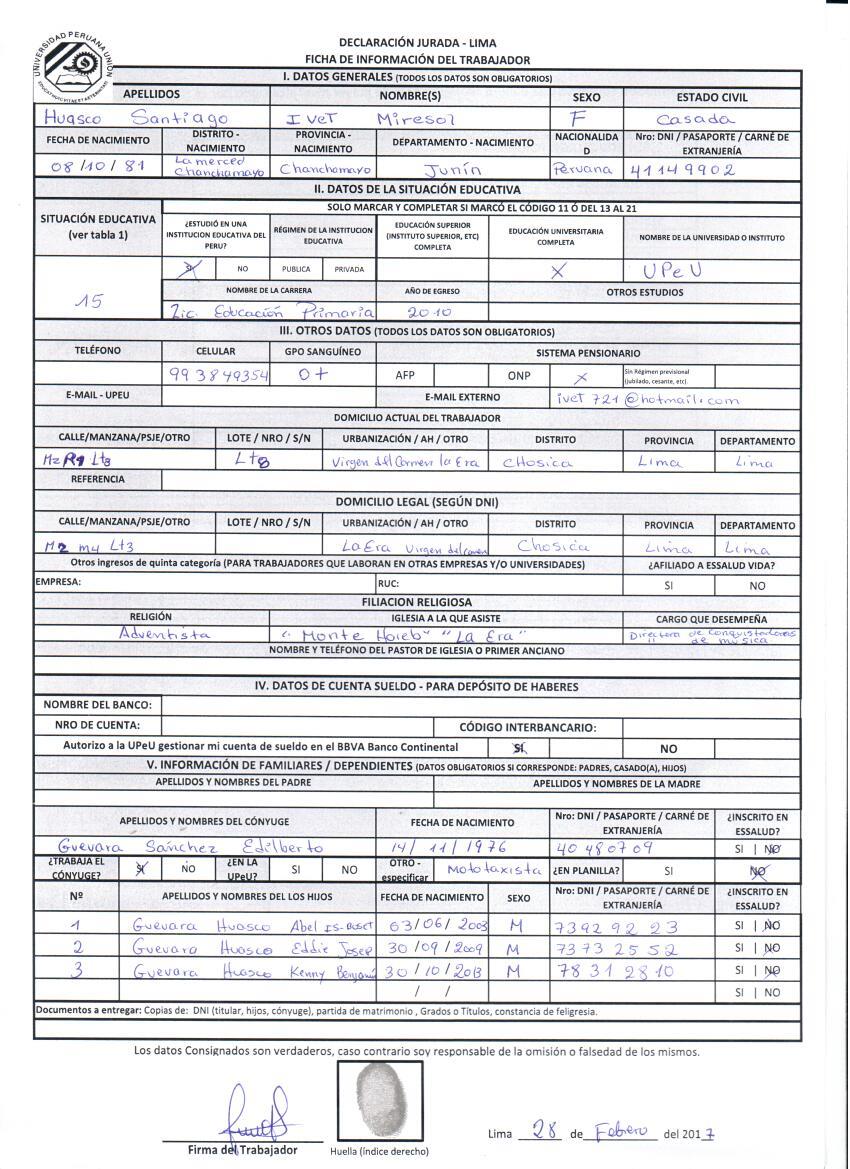 UNIVERSIDAD PERUANA UNION
DECLARACIÓN JURADA - LIMA
FICHA DE INFORMACIÓN DEL TRABAJADOR
I. DATOS GENERALES (TODOS LOS DATOS SON OBLIGATORIOS)
APELLIDOS NOMBRE(S) SEXO ESTADO CIVIL
Huasco Santiago Ivet Miresol F Casada
FECHA DE NACIMIENTO DISTRITO - NACIMIENTO PROVINCIA - NACIMIENTO DEPARTAMENTO - NACIMIENTO NACIONALIDAD Nro: DNI / PASAPORTE / CARNÉ DE EXTRANJERÍA
08/10/81 La merced Chanchamayo Chanchamayo Junín Peruana 41149902
II. DATOS DE LA SITUACIÓN EDUCATIVA
SITUACIÓN EDUCATIVA (ver tabla 1) SOLO MARCAR Y COMPLETAR SI MARCÓ EL CÓDIGO 11 Ó DEL 13 AL 21
¿ESTUDIÓ EN UNA INSTITUCION EDUCATIVA DEL PERU? RÉGIMEN DE LA INSTITUCION EDUCATIVA EDUCACIÓN SUPERIOR (INSTITUTO SUPERIOR, ETC) COMPLETA EDUCACIÓN UNIVERSITARIA COMPLETA NOMBRE DE LA UNIVERSIDAD O INSTITUTO
SI NO PUBLICA PRIVADA X UPeU
15 NOMBRE DE LA CARRERA AÑO DE EGRESO OTROS ESTUDIOS
Lic. Educación Primaria 2010
III. OTROS DATOS (TODOS LOS DATOS SON OBLIGATORIOS)
TELÉFONO CELULAR GPO SANGUÍNEO SISTEMA PENSIONARIO
993849354 O+ AFP ONP X Sin Régimen previsional (jubilado, cesante, etc).
E-MAIL - UPEU E-MAIL EXTERNO ivet721@hotmail.com
DOMICILIO ACTUAL DEL TRABAJADOR
CALLE/MANZANA/PSJE/OTRO LOTE / NRO / S/N URBANIZACIÓN / AH / OTRO DISTRITO PROVINCIA DEPARTAMENTO
Mz Lt8 Lt8 Virgen del Carmen la Era CHosica Lima Lima
REFERENCIA
DOMICILIO LEGAL (SEGÚN DNI)
CALLE/MANZANA/PSJE/OTRO LOTE / NRO / S/N URBANIZACIÓN / AH / OTRO DISTRITO PROVINCIA DEPARTAMENTO
Mz m4 Lt3 La Era Virgen del Chosica Lima Lima
Otros ingresos de quinta categoría (PARA TRABAJADORES QUE LABORAN EN OTRAS EMPRESAS Y/O UNIVERSIDADES) ¿AFILIADO A ESSALUD VIDA?
EMPRESA: RUC: SI NO
FILIACION RELIGIOSA
RELIGIÓN IGLESIA A LA QUE ASISTE CARGO QUE DESEMPEÑA
Adventista " Monte Horeb" "La Era" Directora de Conquistadores " de música
NOMBRE Y TELÉFONO DEL PASTOR DE IGLESIA O PRIMER ANCIANO
IV. DATOS DE CUENTA SUELDO - PARA DEPÓSITO DE HABERES
NOMBRE DEL BANCO:
NRO DE CUENTA: CÓDIGO INTERBANCARIO:
Autorizo a la UPeU gestionar mi cuenta de sueldo en el BBVA Banco Continental SI NO
V. INFORMACIÓN DE FAMILIARES / DEPENDIENTES (DATOS OBLIGATORIOS SI CORRESPONDE: PADRES, CASADO(A), HIJOS)
APELLIDOS Y NOMBRES DEL PADRE APELLIDOS Y NOMBRES DE LA MADRE
APELLIDOS Y NOMBRES DEL CÓNYUGE FECHA DE NACIMIENTO Nro: DNI / PASAPORTE / CARNÉ DE EXTRANJERÍA ¿INSCRITO EN ESSALUD?
Guevara Sanchez Edilberto 14/11/1976 40480709 SI | NO
¿TRABAJA EL CÓNYUGE? SI NO ¿EN LA UPeU? SI NO OTRO - especificar Mototaxista ¿EN PLANILLA? SI NO
Nº APELLIDOS Y NOMBRES DE LOS HIJOS FECHA DE NACIMIENTO SEXO Nro: DNI / PASAPORTE / CARNÉ DE EXTRANJERÍA ¿INSCRITO EN ESSALUD?
1 Guevara Huasco Abel 03/06/2003 M 73929223 SI | NO
2 Guevara Huasco Eddie Josep 30/09/2009 M 73732552 SI | NO
3 Guevara Huasco Kenny Benjamí 30/10/2013 M 78312810 SI | NO
/ / SI | NO
Documentos a entregar: Copias de: DNI (titular, hijos, cónyuge), partida de matrimonio , Grados o Títulos, constancia de feligresia.
Los datos Consignados son verdaderos, caso contrario soy responsable de la omisión o falsedad de los mismos.
Lima 28 de Febrero del 2017
Firma del Trabajador Huella (índice derecho)